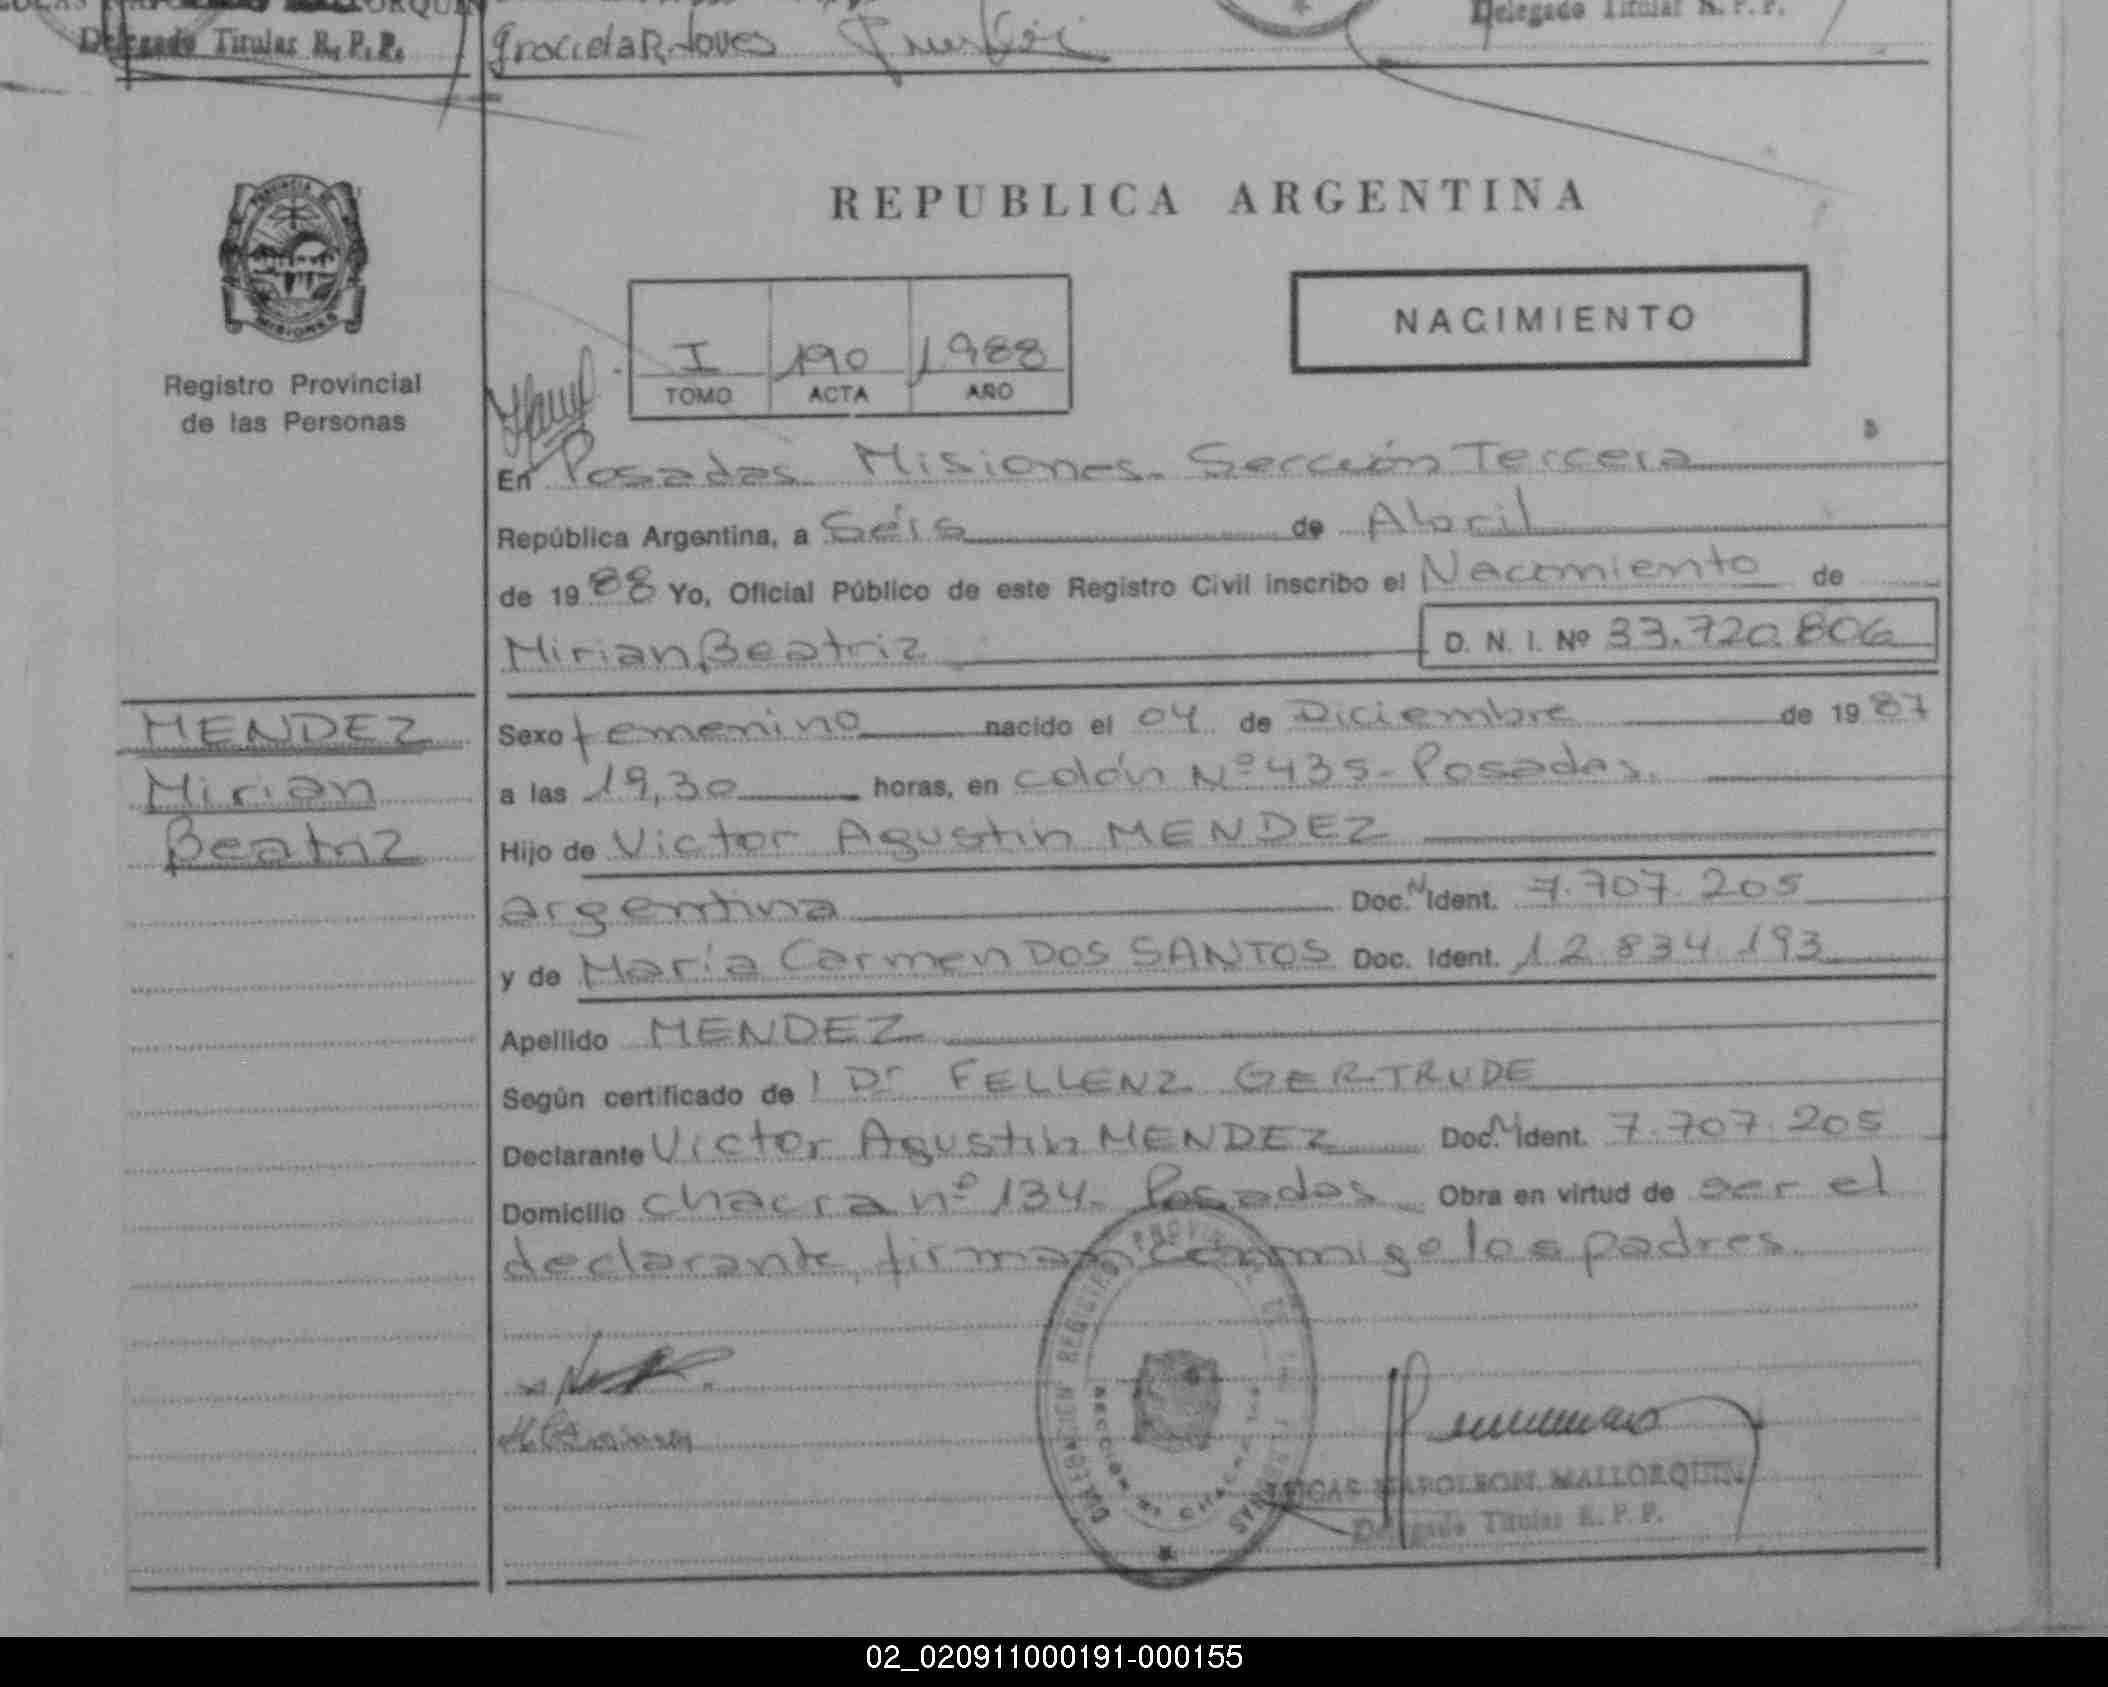 Delegado Titular R. P. P.
Delegado Titular R. P. P.
Graciela R.
REPUBLICA ARGENTINA
PROVINCIA
MISIONES
NACIMIENTO
I 190 1988
TOMO ACTA AÑO
Registro Provincial
de las Personas
En Posadas Misiones. Sección Tercera
República Argentina, a Séis de Abril
de 1988 Yo, Oficial Público de este Registro Civil inscribo el Nacimiento de
Mirian Beatriz D. N. I. Nº 33.720.806
MENDEZ
Mirian
Beatriz
Sexo femenino nacido el 04 de Diciembre de 1987
a las 19,30 horas, en colón Nº 435 - Posadas.
Hijo de Victor Agustin MENDEZ
argentina Doc. N Ident. 7.707.205
y de María Carmen DOS SANTOS Doc. Ident. 12.834.193
Apellido MENDEZ
Según certificado de l Dr FELLENZ GERTRUDE
Declarante Victor Agustin MENDEZ Doc. N Ident. 7.707.205
Domicilio chacra nº 134. Posadas Obra en virtud de ser el
declarante, firman conmigo los padres.
DELEGACION REGISTRO PROVINCIAL DE LAS PERSONAS
LUCAS NAPOLEON MALLORQUIN
Delegado Titular R. P. P.
02_020911000191-000155